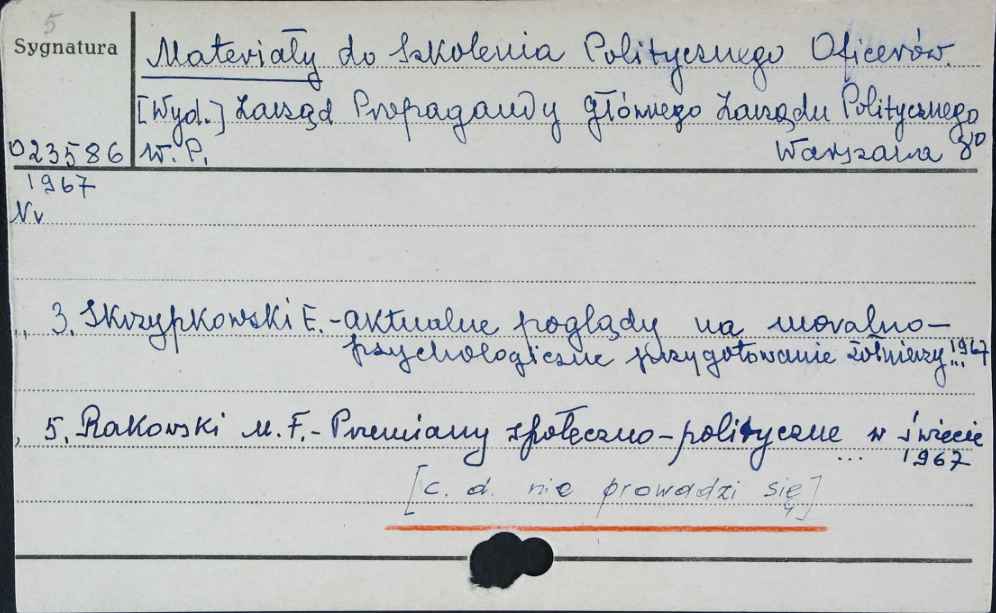 5
Sygnatura
Materiały do Szkolenia Politycznego Oficerów.
[Wyd.] Zarząd Propagandy Głównego Zarządu Politycznego
023586 W.P. Warszawa 8°
1967
Nr
„ 3. Skrzypkowski E. - aktualne poglądy na moralno-
psychologiczne przygotowanie żołnierzy... 1967
„ 5. Rakowski M. F. - Przemiany społeczno-polityczne w świecie
... 1967
[c. d. nie prowadzi się]